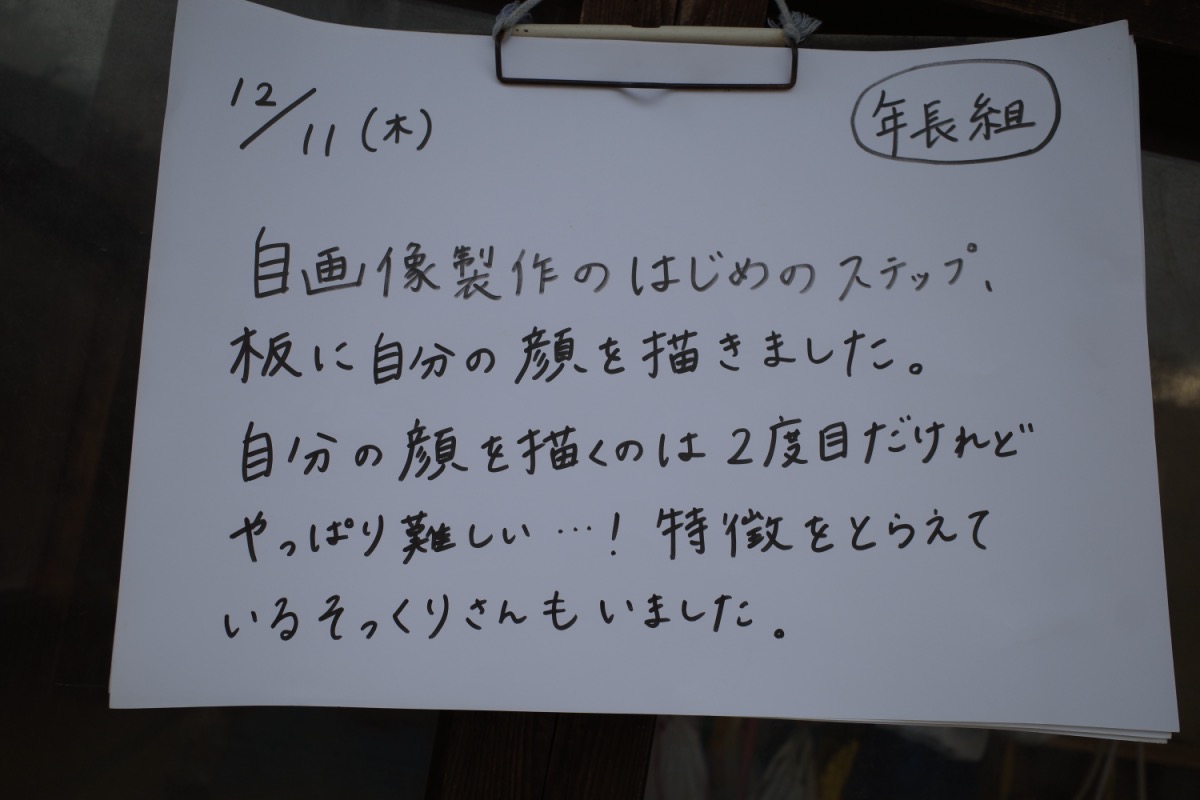 12/11(木)
年長組
自画像製作のはじめのステップ、
板に自分の顔を描きました。
自分の顔を描くのは2度目だけれど
やっぱり難しい…!特徴をとらえて
いるそっくりさんもいました。